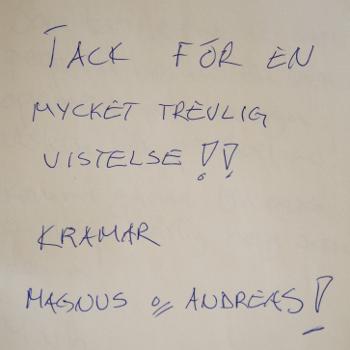 TACK FÖR EN
MYCKET TREVLIG
VISTELSE!!
KRAMAR
MAGNUS o ANDREAS!